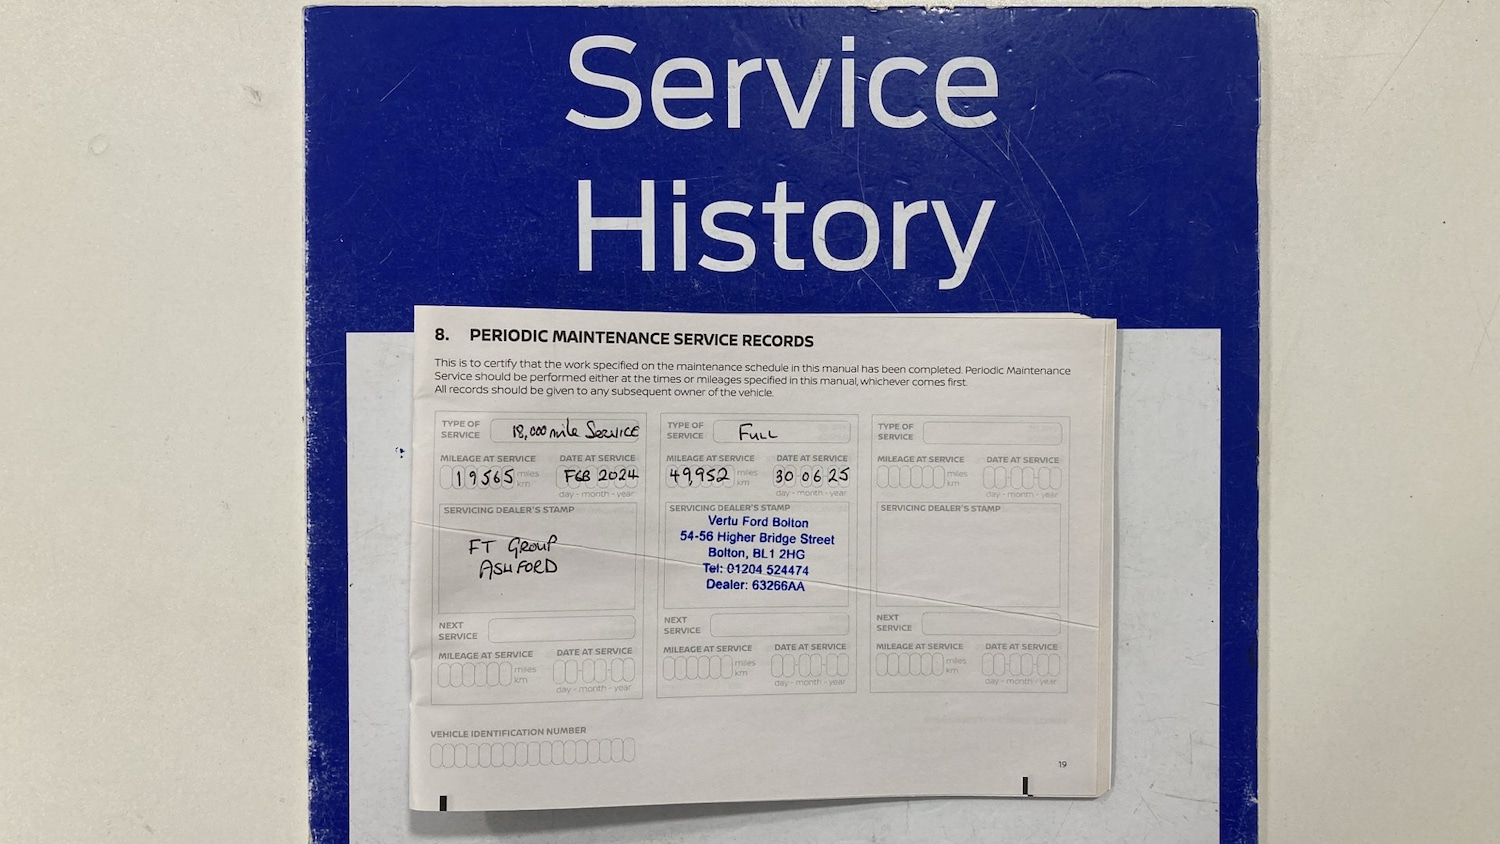 Service
History
8. PERIODIC MAINTENANCE SERVICE RECORDS
This is to certify that the work specified on the maintenance schedule in this manual has been completed. Periodic Maintenance
Service should be performed either at the times or mileages specified in this manual, whichever comes first.
All records should be given to any subsequent owner of the vehicle.
TYPE OF SERVICE 18,000 mile SERVICE
MILEAGE AT SERVICE DATE AT SERVICE
19565 miles km FEB 2024
day - month - year
SERVICING DEALER'S STAMP
FT GROUP
ASHFORD
NEXT SERVICE
MILEAGE AT SERVICE DATE AT SERVICE
miles km
day - month - year
TYPE OF SERVICE FULL
MILEAGE AT SERVICE DATE AT SERVICE
49,952 miles km 30 06 25
day - month - year
SERVICING DEALER'S STAMP
Vertu Ford Bolton
54-56 Higher Bridge Street
Bolton, BL1 2HG
Tel: 01204 524474
Dealer: 63266AA
NEXT SERVICE
MILEAGE AT SERVICE DATE AT SERVICE
miles km
day - month - year
TYPE OF SERVICE
MILEAGE AT SERVICE DATE AT SERVICE
miles km
day - month - year
SERVICING DEALER'S STAMP
NEXT SERVICE
MILEAGE AT SERVICE DATE AT SERVICE
miles km
day - month - year
VEHICLE IDENTIFICATION NUMBER
19